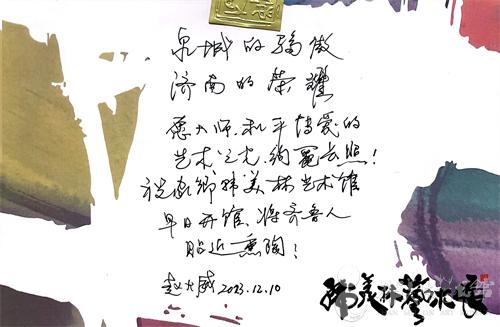 泉城的骄傲
济南的荣耀
愿大师和平博爱的
艺术之光,绚丽长照!
祝家乡韩美林艺术馆
早日开馆,将齐鲁人
贴近熏陶!
赵大威 2023.12.10
韩美林艺术展